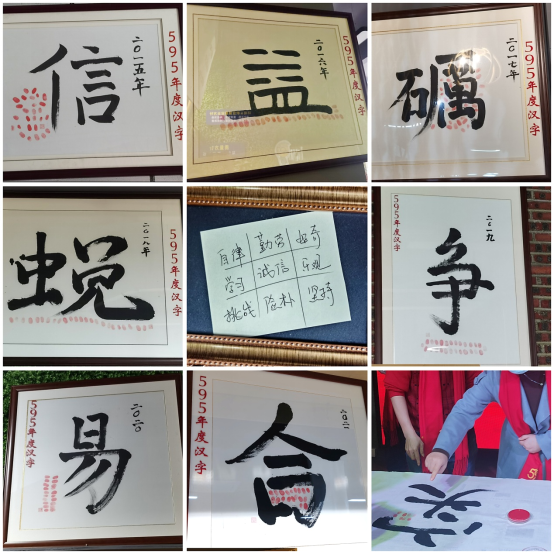 信
二〇一五年
595年度汉字
益
二〇一六年
595年度汉字
礪
二〇一七年
595年度汉字
蜕
二〇一八年
595年度汉字
自律 勤劳 好奇
学习 诚信 乐观
挑战 俭朴 坚持
争
二〇一九
595年度汉字
易
二〇二〇
595年度汉字
合
二〇二一
595年度汉字